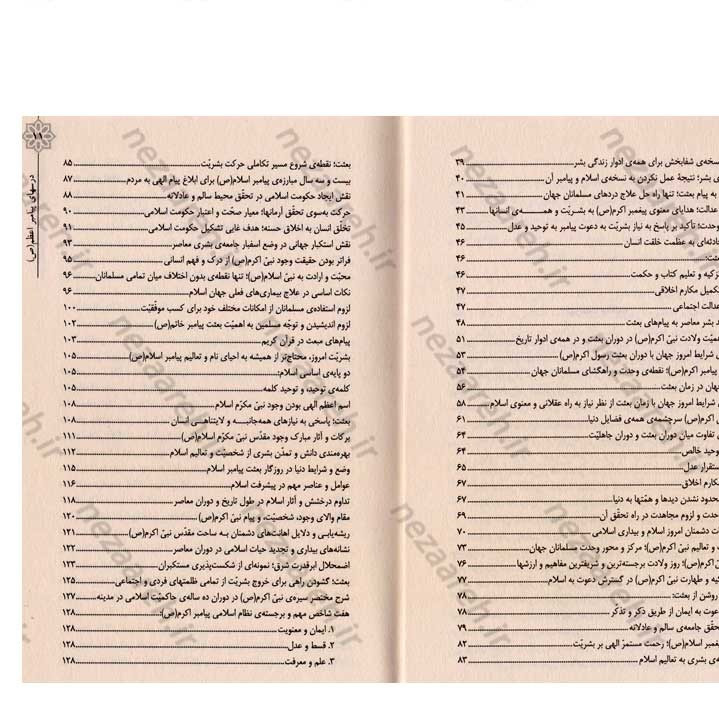 نسخه‌ی شفابخش برای همه‌ی ادوار زندگی بشر ۳۹
ی بشر؛ نتیجه‌ی عمل نکردن به نسخه‌ی اسلام و پیامبر آن ۴۰
به پیام بعثت؛ تنها راه حل علاج دردهای مسلمانان جهان ۴۱
عدالت: هدایای معنوی پیغمبر اکرم(ص) به بشریّت و همه‌ی انسانها ۴۳
وحدت؛ تأکید بر پاسخ به نیاز بشریّت به دعوت پیامبر به توحید و عدل ۴۵
به عظمت خلقت انسان ۴۶
بعثت: ۴۶
تزکیه و تعلیم کتاب و حکمت ۴۶
تکمیل مکارم اخلاقی ۴۷
عدالت اجتماعی ۴۷
بشر معاصر به پیام‌های بعثت ۴۸
اهمّیت ولادت نبیّ اکرم(ص) در دوران بعثت و در همه‌ی ادوار تاریخ ۵۱
شرایط امروز جهان با دوران بعثت رسول اکرم(ص) ۵۳
پیامبر اکرم(ص)؛ نقطه‌ی وحدت و راهگشای مسلمانان جهان ۵۴
جهان در زمان بعثت ۵۶
شرایط امروز جهان با زمان بعثت از نظر نیاز به راه عقلانی و معنوی اسلام ۵۸
اکرم(ص) سرچشمه‌ی همه‌ی فضایل دنیا ۶۱
تفاوت میان دوران بعثت و دوران جاهلیّت ۶۴
توحید خالص ۶۴
استقرار عدل ۶۵
مکارم اخلاق ۶۷
محدود نشدن دیدها و همّتها به دنیا ۶۷
وحدت و لزوم مجاهدت در راه تحقّق آن ۶۹
دشمنان امروز اسلام و بیداری اسلامی ۷۰
و تعالیم نبیّ اکرم(ص)؛ مرکز و محور وحدت مسلمانان جهان ۷۳
اکرم(ص)؛ روز ولادت برجسته‌ترین و شریفترین مفاهیم و ارزشها ۷۶
و طهارت نبیّ اکرم(ص) در گسترش دعوت به اسلام ۷۷
روشن از بعثت: ۷۸
دعوت به ایمان از طریق ذکر و تذکّر ۷۸
تحقّق جامعه‌ی سالم و عادلانه ۷۹
پیغمبر اسلام(ص)؛ رحمت مستمرّ الهی بر بشریّت ۸۲
ی بشری به تعالیم اسلام ۸۳
۱۱
درسهای پیامبر اعظم(ص)
بعثت؛ نقطه‌ی شروع مسیر تکاملی حرکت بشریّت ۸۵
بیست و سه سال مبارزه‌ی پیامبر اسلام(ص) برای ابلاغ پیام الهی به مردم ۸۷
نقش ایجاد حکومت اسلامی در تحقّق محیط سالم و عادلانه ۸۸
حرکت به‌سوی تحقّق آرمانها؛ معیار صحّت و اعتبار حکومت اسلامی ۹۰
تخلّق انسان به اخلاق حسنه؛ هدف غایی تشکیل حکومت اسلامی ۹۱
نقش استکبار جهانی در وضع اسفبار جامعه‌ی بشری معاصر ۹۳
فراتر بودن حقیقت وجود نبیّ اکرم(ص) از درک و فهم انسانی ۹۵
محبّت و ارادت به نبیّ اسلام(ص)؛ تنها نقطه‌ی بدون اختلاف میان تمامی مسلمانان ۹۶
نکات اساسی در علاج بیماری‌های فعلی جهان اسلام ۹۶
لزوم استفاده‌ی مسلمانان از امکانات مختلف خود برای کسب موفّقیّت ۱۰۰
لزوم اندیشیدن و توجّه مسلمین به اهمیّت بعثت پیامبر خاتم(ص) ۱۰۲
پیام‌های مبعث در قرآن کریم ۱۰۳
بشریّت امروز، محتاج‌تر از همیشه به احیای نام و تعالیم پیامبر اسلام(ص) ۱۰۵
دو پایه‌ی اساسی اسلام: ۱۰۵
کلمه‌ی توحید، و توحید کلمه ۱۰۵
اسم اعظم الهی بودن وجود نبیّ مکرّم اسلام ۱۰۸
بعثت؛ پاسخی به نیازهای همه‌جانبه و لایتناهی انسان ۱۰۸
برکات و آثار مبارک وجود مقدّس نبیّ مکرّم اسلام(ص) ۱۱۱
بهره‌مندی دانش و تمدّن بشری از شخصیّت و تعالیم اسلام ۱۱۲
وضع و شرایط دنیا در روزگار بعثت پیامبر اسلام ۱۱۵
عوامل و عناصر مهم در پیشرفت اسلام ۱۱۶
تداوم درخشش و آثار اسلام در طول تاریخ و دوران معاصر ۱۱۸
مقام والای وجود، شخصیّت، و پیام نبیّ اکرم(ص) ۱۲۰
ریشه‌یابی و دلایل اهانت‌های دشمنان به ساحت مقدّس نبیّ اکرم(ص) ۱۲۱
نشانه‌های بیداری و تجدید حیات اسلامی در دوران معاصر ۱۲۲
اضمحلال ابرقدرت شرق؛ نمونه‌ای از شکست‌پذیری مستکبران ۱۲۳
بعثت؛ گشودن راهی برای خروج بشریّت از تمامی ظلمتهای فردی و اجتماعی ۱۲۵
شرح مختصر سیره‌ی نبیّ اکرم(ص) در دوران ده ساله‌ی حاکمیّت اسلامی در مدینه ۱۲۷
هفت شاخص مهم و برجسته‌ی نظام اسلامی پیامبر اکرم(ص): ۱۲۸
۱. ایمان و معنویت ۱۲۸
۲. قسط و عدل ۱۲۸
۳. علم و معرفت ۱۲۸
nezaareh.ir